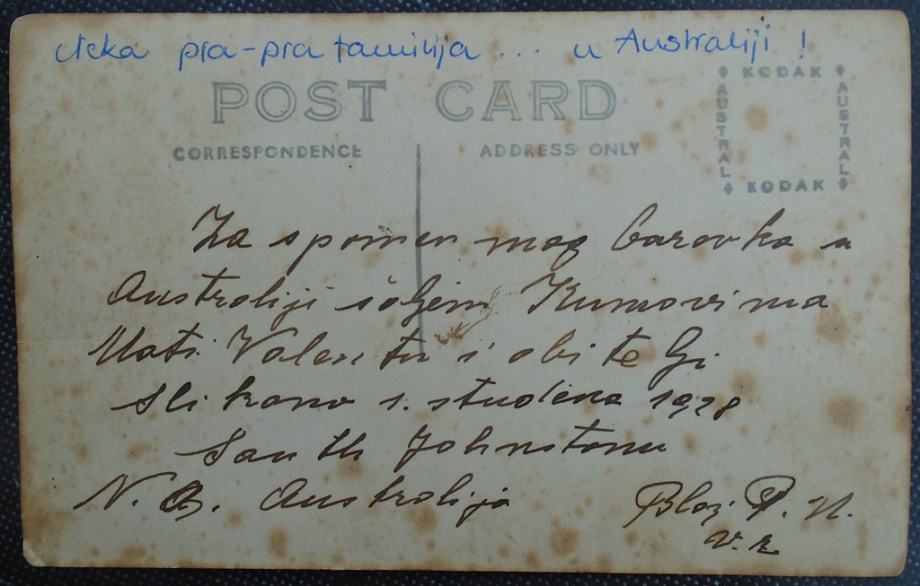 neka pra-pra familija ... u Australiji !
POST CARD
CORRESPONDENCE
ADDRESS ONLY
KODAK
AUSTRAL
AUSTRAL
KODAK
Za spomen mog boravka u
Australiji šaljem Kumovima
Mati Valentu i obitelji
Slikano 1. studena 1928
South Johnstonu
N. Q. Australija
Blaž P. N.
v.r.